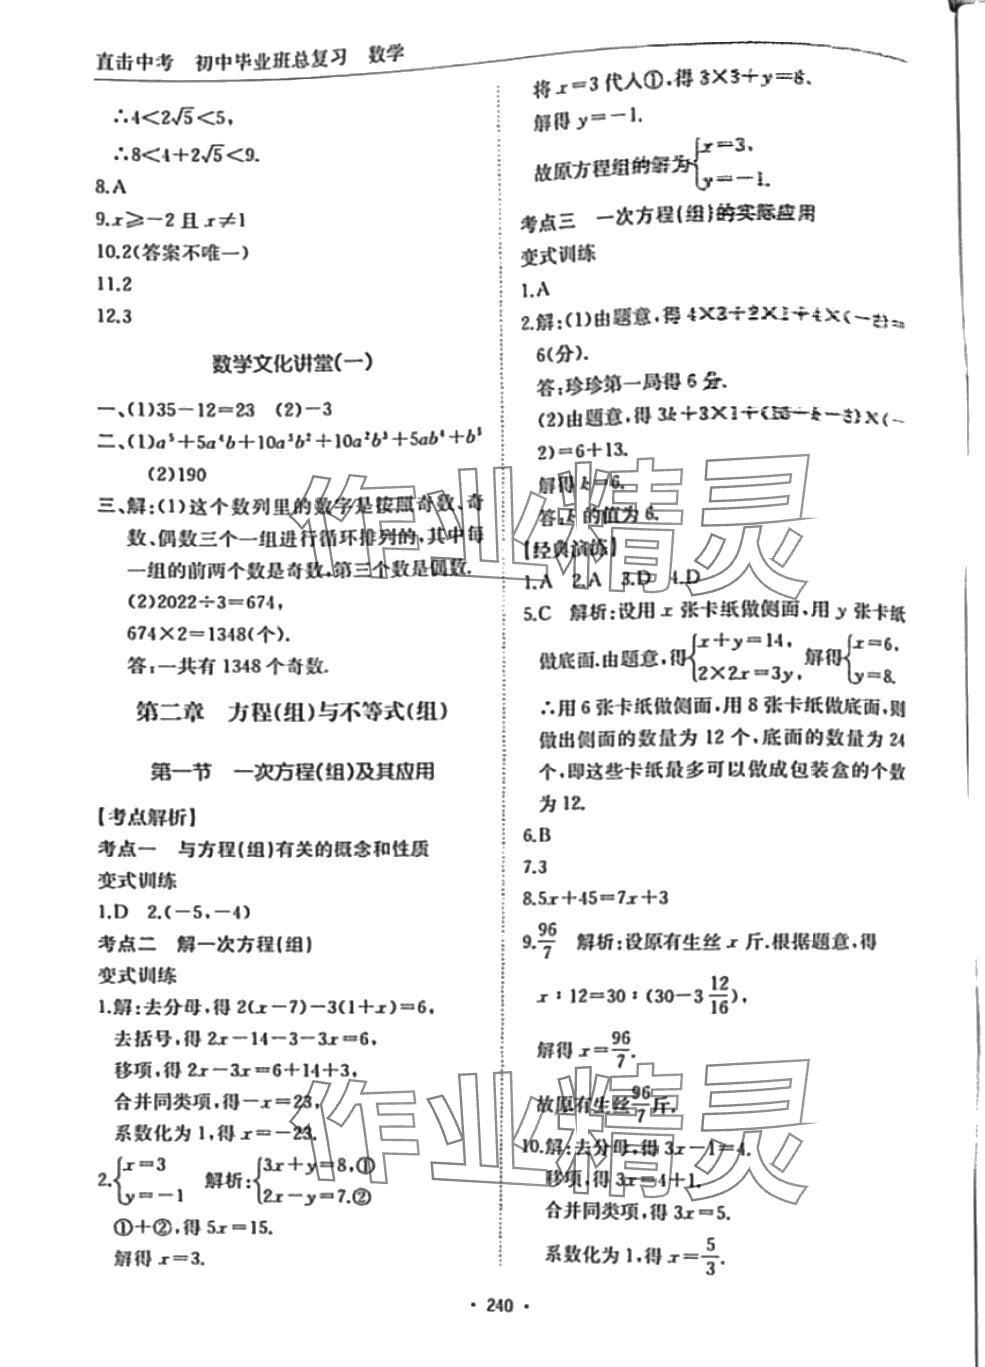 直击中考　初中毕业班总复习　数学
∴4＜2√5＜5，
∴8＜4＋2√5＜9.
8.A
9.x≥－2 且 x≠1
10.2(答案不唯一)
11.2
12.3
数学文化讲堂(一)
一、(1)35－12＝23　(2)－3
二、(1)a⁵＋5a⁴b＋10a³b²＋10a²b³＋5ab⁴＋b⁵
(2)190
三、解：(1)这个数列里的数字是按照奇数、奇
数、偶数三个一组进行循环排列的，其中每
一组的前两个数是奇数，第三个数是偶数.
(2)2022÷3＝674，
674×2＝1348(个).
答：一共有 1348 个奇数.
第二章　方程(组)与不等式(组)
第一节　一次方程(组)及其应用
【考点解析】
考点一　与方程(组)有关的概念和性质
变式训练
1.D　2.(－5，－4)
考点二　解一次方程(组)
变式训练
1.解：去分母，得 2(x－7)－3(1＋x)＝6，
去括号，得 2x－14－3－3x＝6，
移项，得 2x－3x＝6＋14＋3，
合并同类项，得－x＝23，
系数化为 1，得 x＝－23.
2.{x＝3　y＝－1　解析：{3x＋y＝8，①　2x－y＝7.②
①＋②，得 5x＝15.
解得 x＝3.
将 x＝3 代入①，得 3×3＋y＝8.
解得 y＝－1.
故原方程组的解为{x＝3，　y＝－1.
考点三　一次方程(组)的实际应用
变式训练
1.A
2.解：(1)由题意，得 4×3＋2×1＋4×(－2)＝
6(分).
答：珍珍第一局得 6 分.
(2)由题意，得 3k＋3×1＋(10－k－3)×(－
2)＝6＋13.
解得 k＝6.
答：k 的值为 6.
【经典演练】
1.A　2.A　3.D　4.D
5.C　解析：设用 x 张卡纸做侧面，用 y 张卡纸
做底面.由题意，得{x＋y＝14，　2×2x＝3y，　解得{x＝6，　y＝8.
∴用 6 张卡纸做侧面，用 8 张卡纸做底面，则
做出侧面的数量为 12 个，底面的数量为 24
个，即这些卡纸最多可以做成包装盒的个数
为 12.
6.B
7.3
8.5x＋45＝7x＋3
9.96/7　解析：设原有生丝 x 斤.根据题意，得
x∶12＝30∶(30－3 12/16)，
解得 x＝96/7.
故原有生丝96/7斤，
10.解：去分母，得 3x－1＝4.
移项，得 3x＝4＋1.
合并同类项，得 3x＝5.
系数化为 1，得 x＝5/3.
· 240 ·
作业精灵
作业精灵